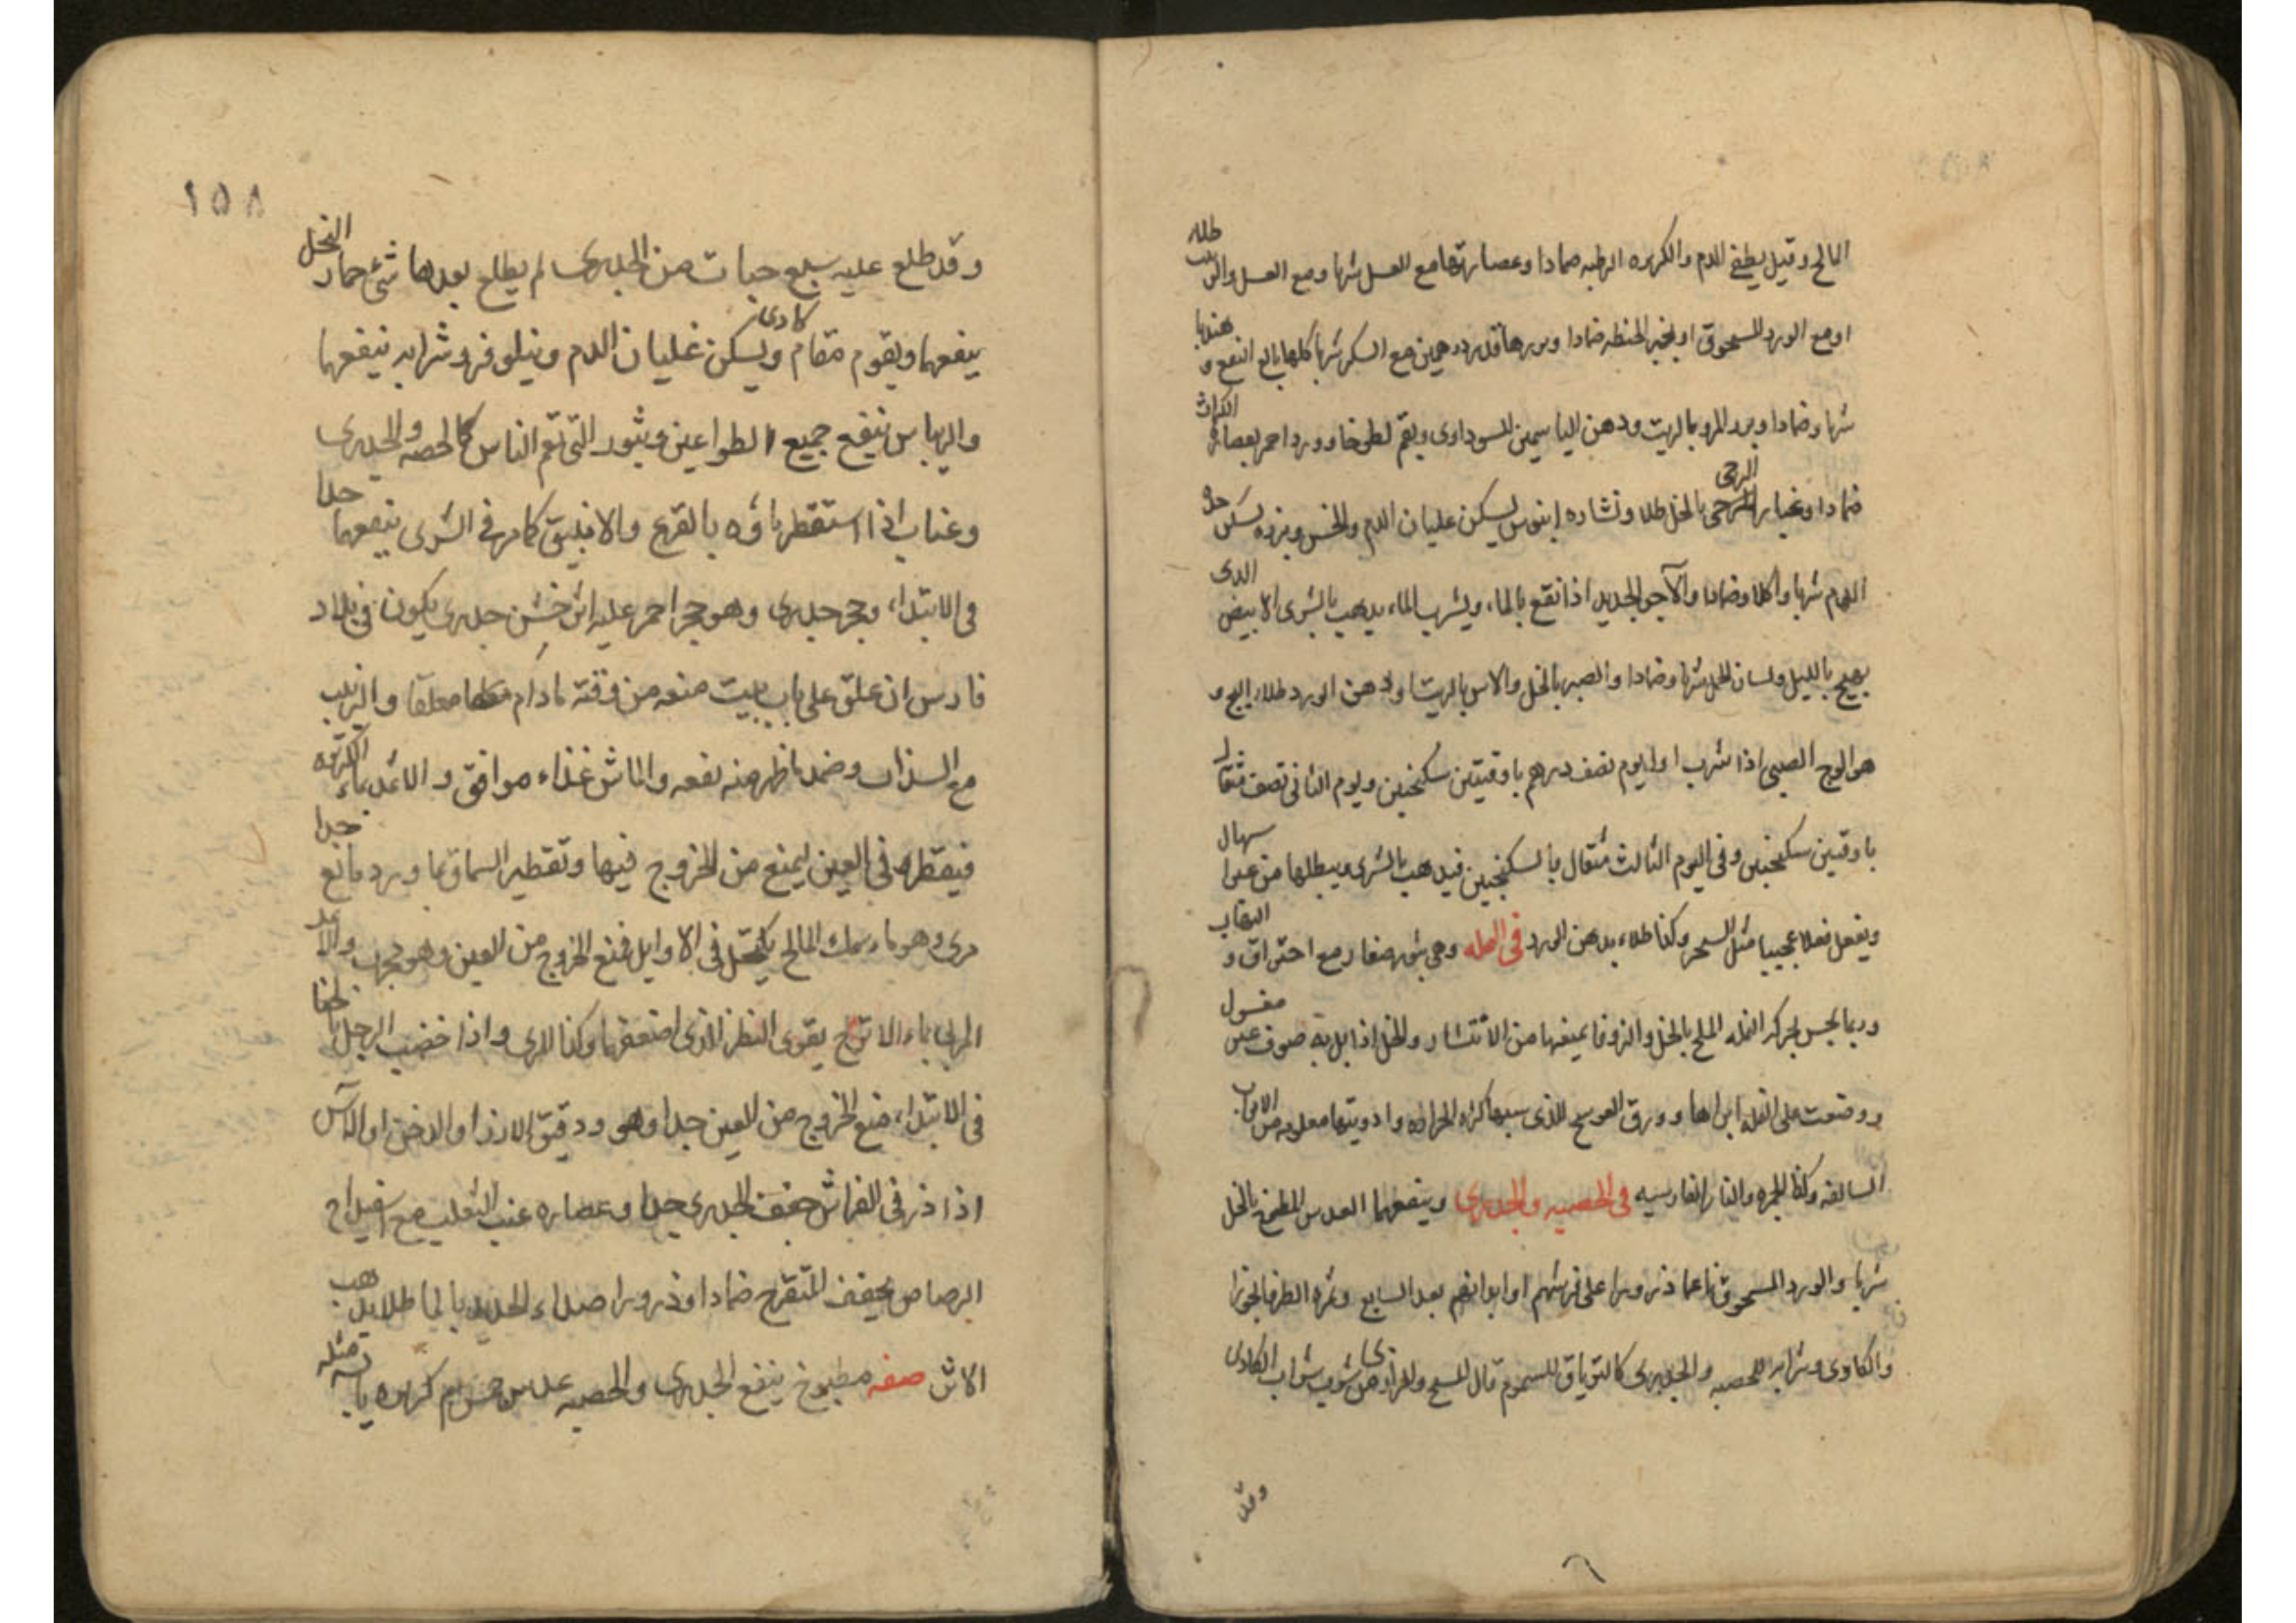 المالح وقيل يطفي الدم والكزبره الرطبه ضمادا وعصارتها مع العسل شربا ومع العسل والزيت طله
او مع الورد المسحوق او بخبز الحنطه ضمادا وبزرها قدر درهمين مع السكر شربا كلها بالغ النفع و هندبا
شربا وضمادا وبزر المرو بالزيت ودهن الياسمين للسوداوى وبلغم لطوخا وورد احمر بعصارة الكراث
ضمادا وغبار الرحى بالخل طلا ونشاره ابنوس يسكن غليان الدم والخس وبزره يسكن حدة
الدم شربا واكلا وضمادا والآجر الجديد اذا نقع بالماء ويشرب الماء يذهب بالشرى الابيض الدى
يهيج بالليل ولسان الحمل شربا وضمادا والصبر بالخل والاس بالزيت او دهن الورد طلاء ايج و
هو الوج الصينى اذا شرب اول يوم نصف درهم باوقيتين سكنجبين ويوم الثانى نصف مثقال
باوقتين سكنجبين وفى اليوم الثالث مثقال بالسكنجبين فيذهب بالشرى ويبطلها من غير اسهال
ويفعل فعلا عجيبا مثل السحر وكذا طلاء بدهن الورد فى النمله وهى بثور صغار مع احتراق و التهاب
وربما يحس بحركه النمله الملح بالخل والزوفا يمنعها من الانتشار والخل اذا بل به صوف غير مغسول
ووضعت على النمله ابراها وورق العوسج للذى سببها كثره الحراره وادويتها معلومه من الابواب
السالفه وكذا للجمره والنار الفارسيه فى الحصبه والجدرى وينفعهما العدس المطبوخ بالخل
شربا والورد المسحوق ناعما ذرورا على فرشهم او ابدانهم بعد السابع وثمره الطرفا بخورا
والكاوى وشرابه للحصبه والجدرى كالترياق للسموم قال المسيح والرازى من شرب شراب الكادى
وقد
١٥٨
وقد طلع عليه سبع حبات من الجدرى لم يطلع بعدها شئ جمار النخل
ينفعهما ويقوم مقام كادى ويسكن غليان الدم ونيلوفر وشرابه ينفعهما
والريباس ينفع جميع الطواعين وبثور التى تعم الناس كالحصبه والجدرى
وعناب اذا استقطر ماؤه بالقرع والانبيق كما مر فى الشرى ينفعهما جدا
فى الابتداء وحجر جدرى وهو حجر احمر عليه اثر خشن جدرى يكون فى بلاد
فارس ان علق على باب بيت منعه من وقته ما دام معلقا والزبيب
مع السذاب وضمد ما ظهر منه نفعه والماش غذاء موافق والاثمد بماء الكزبره
فيقطر فى العين ليمنع من الخروج فيها وتقطير السماق بماورد مانع جدا
مرى وهو ماء سمك المالح يكتحل فى الاوايل فمنع الخروج من العين وهو مجرب والاثمد
المربى بماء الاترج يقوى النظر الذى اضعفها وكذا المرى واذا خضب الرجل بالحنا
فى الابتداء منع الخروج من العين جدا وهو ودقيق الارز او الدخن او الآس
اذا ذر فى الفراش جفف الجدرى جدا وعصاره عنب الثعلب مع اسفيداج
الرصاص يجفف المتقرح ضمادا وذرورا صداء الحديد بالماء طلا يذهب
الاثر صفه مطبوخ ينفع الجدرى والحصبه عدس خمس دراهم كزبره يابسه مثله